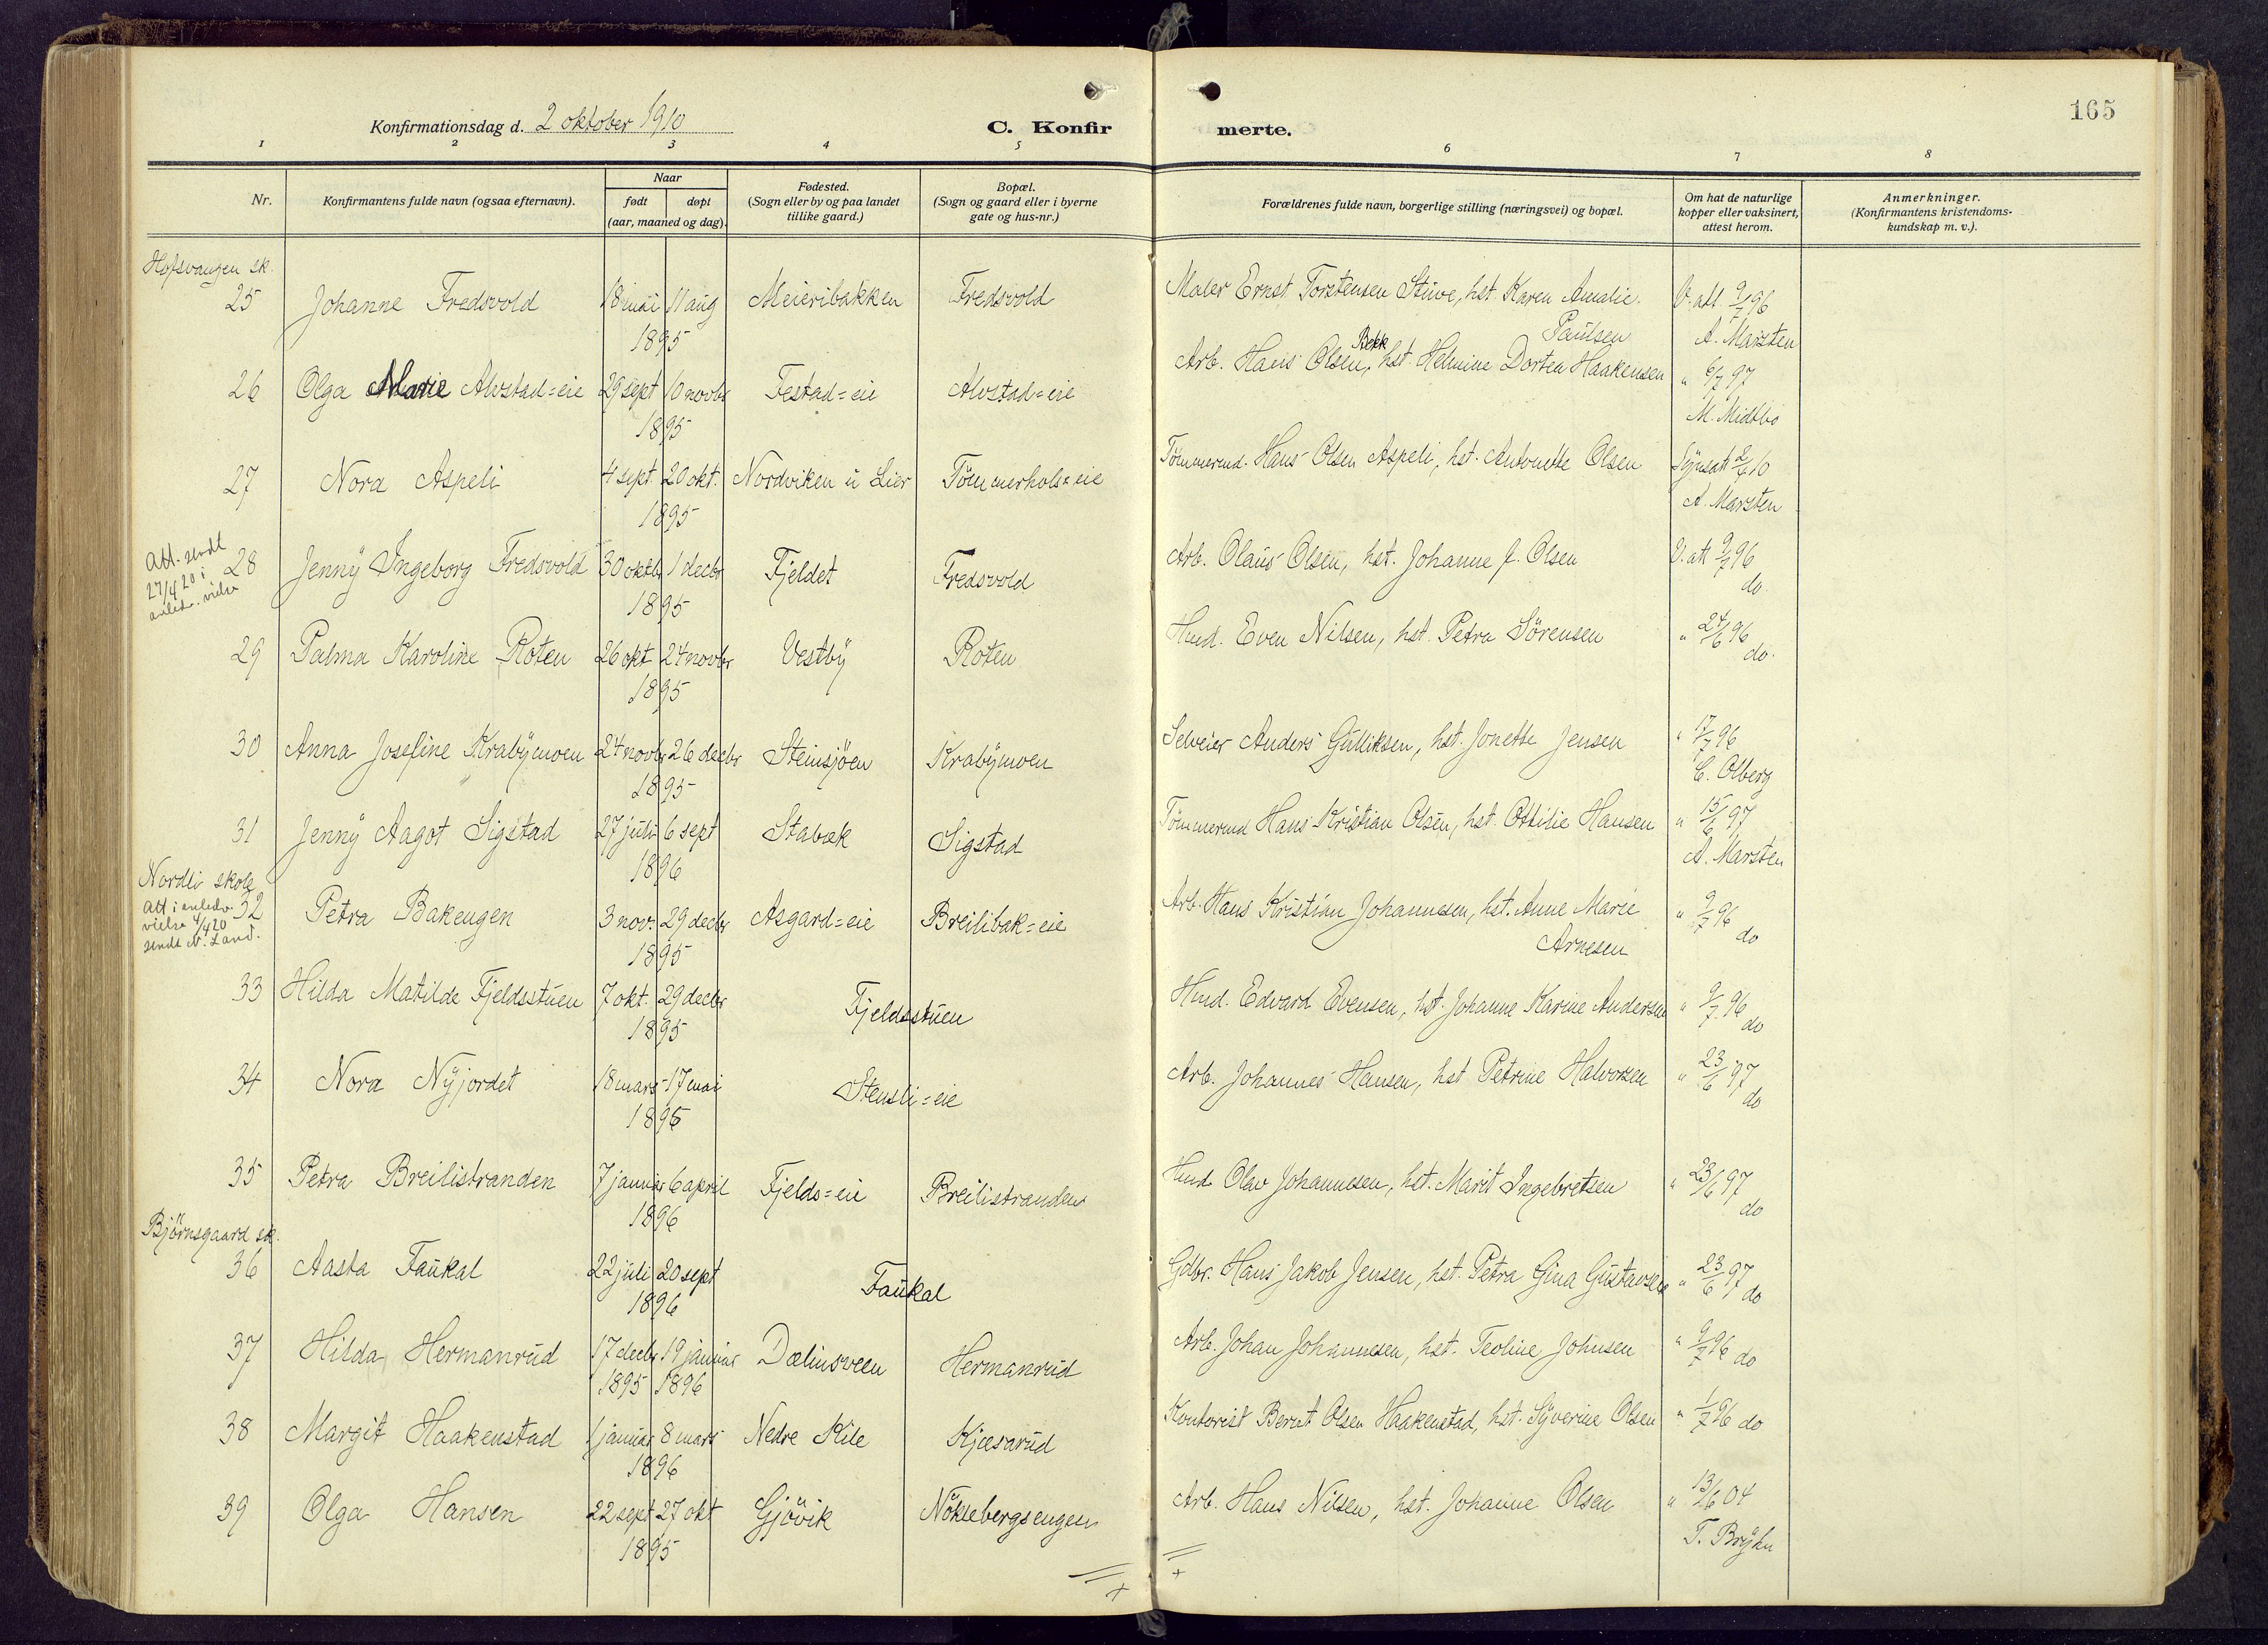 165
Konfirmationsdag d. 2 oktober 1910
C. Konfir merte.
1 2 3 4 5 6 7 8
Nr.
Konfirmantens fulde navn (ogsaa efternavn).
Naar
født
døpt
(aar, maaned og dag).
Fødested.
(Sogn eller by og paa landet
tillike gaard.)
Bopæl.
(Sogn og gaard eller i byerne
gate og hus-nr.)
Forældrenes fulde navn, borgerlige stilling (næringsvei) og bopæl.
Om hat de naturlige
kopper eller vaksinert,
attest herom.
Anmerkninger.
(Konfirmantens kristendoms-
kundskap m. v.).
Hofsvangen sk.
25 Johanne Fredsvold 18 mai 11 aug Meieribakken Fredsvold Maler Ernst Torstensen Stuve, hst. Karen Amalie
1895 Paulsen
V. att. 9/7 96
A. Marsten
26 Olga Marie Alvstad=eie 29 sept 10 novbr Festad=eie Alvstad=eie Arb. Hans Olsen Bekk, hst. Helmine Dortea Haakensen " 6/7 97
1895 M. Midtbo
27 Nora Aspeli 4 sept. 20 okt. Nordviken i Lier Tömmerhols=eie Tömmermd. Hans Olsen Aspeli, hst. Antonette Olsen Synsatt 2/6 10
1895 A. Marsten
Att. sendt
27/4 20 i
anledn. vielse
28 Jenny Ingeborg Fredsvold 30 oktbr 1 decbr Fjeldet Fredsvold Arb. Olaus Olsen, hst. Johanne J. Olsen V. att 9/7 96
1895 do.
29 Palma Karoline Roten 26 okt 24 novbr Vestby Roten Hmd. Even Nilsen, hst. Petra Sörensen " 24/6 96
1895 do.
30 Anna Josefine Krabymoen 24 novbr 26 decbr Steinsjöen Krabymoen Selveier Anders Gulliksen, hst. Jonette Jensen " 17/7 96
1895 C. Olberg
31 Jenny Aagot Sigstad 27 juli 6 sept Stabæk Sigstad Tömmermd Hans Kristian Olsen, hst. Ottilie Hansen " 15/6 97
1896 A. Marsten
Nordli skole
Att i anledn.
vielse 4/4 20
sendt N. Land.
32 Petra Bakengen 3 nov. 29 decbr Asgard=eie Breilibak=eie Arb. Hans Kristian Johannesen, hst. Anne Marie " 9/7 96
1895 Arnesen do
33 Hilda Matilde Fjeldsstuen 7 okt. 29 decbr Fjeldsstuen Hmd. Edvard Evensen, hst. Johanne Karine Andersen " 9/7 96
1895 do
34 Nora Nyjordet 18 mars 17 mai Stensli=eie Arb. Johannes Hansen, hst Petrine Halvorsen " 23/6 97
1896 do
35 Petra Breilistranden 7 januar 6 april Fjelds=eie Breilistranden Hmd Olav Johannesen, hst. Marit Ingebretsen " 23/6 97
1896 do
Björnsgaard sk.
36 Aasta Faukal 22 juli 20 sept Faukal Gdbr. Hans Jakob Jensen, hst. Petra Gina Gustavsen " 23/6 97
1896 do
37 Hilda Hermanrud 17 decbr 19 januar Dælinsveen Hermanrud Arb. Johan Johannesen, hst. Teoline Johnsen " 9/7 96 do
1895 1896
38 Margit Haakenstad 1 januar 8 mars Nedre Kile Kjæsarud Kontorist Bernt Olsen Haakenstad, hst. Syverine Olsen " 1/7 96 do
1896
39 Olga Hansen 22 sept 27 okt Gjövik Nöklebergsengen Arb. Hans Nilsen, hst. Johanne Olsen " 13/6 04
1895 T. Bryhn